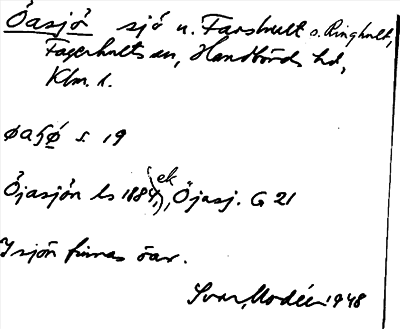 Öasjö sjö n. Farshult o. Ringhult,
Fagerhults sn, Handbörds hd,
Klm. l.
øaʃø s. 19
Öjasjön ls 1884, ek Öjasj. G 21
I sjön finnas öar.
Ivar Modéer 1948